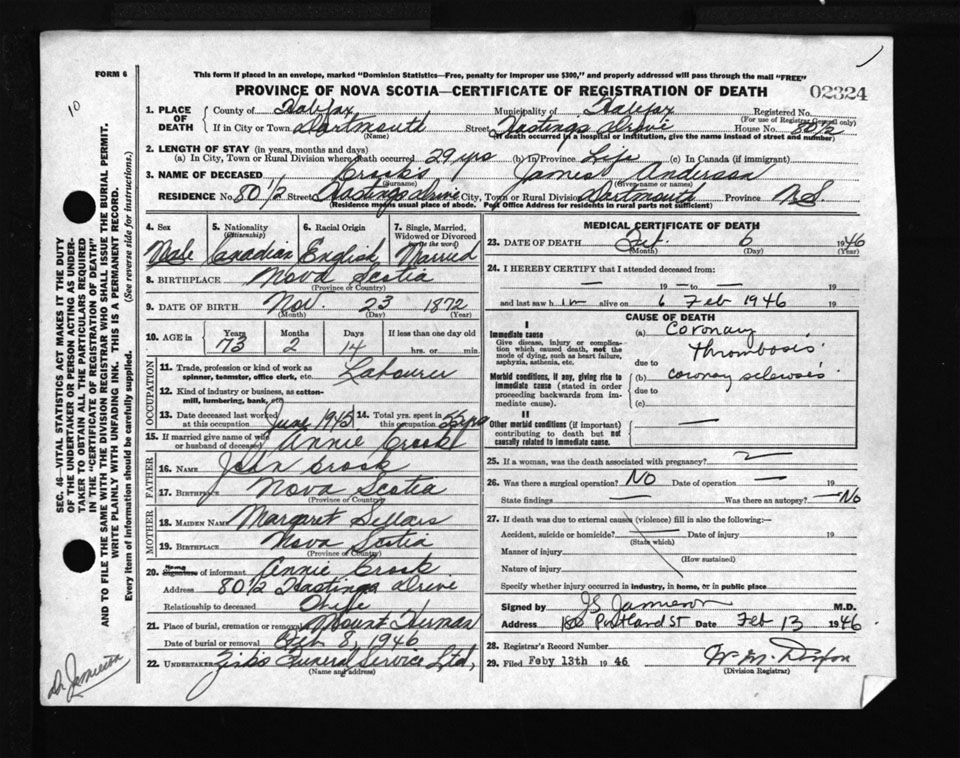 FORM 6
This form if placed in an envelope, marked "Dominion Statistics—Free, penalty for improper use $300," and properly addressed will pass through the mail "FREE"
10
PROVINCE OF NOVA SCOTIA—CERTIFICATE OF REGISTRATION OF DEATH
02324
1. PLACE OF DEATH
County of Halifax Municipality of Halifax Registered No.
(For use of Registrar General only)
If in City or Town Dartmouth Street Hastings Drive House No. 80 1/2
(Name) (If death occurred in a hospital or institution, give the name instead of street and number)
2. LENGTH OF STAY (in years, months and days)
(a) In City, Town or Rural Division where death occurred 29 yrs (b) In Province Life (c) In Canada (if immigrant)
3. NAME OF DECEASED Crooks James Anderson
(Surname) (Given name or names)
RESIDENCE No. 80 1/2 Street Hastings Drive City, Town or Rural Division Dartmouth Province N.S
(Residence means usual place of abode. Post Office Address for residents in rural parts not sufficient)
4. Sex 5. Nationality (Citizenship) 6. Racial Origin 7. Single, Married, Widowed or Divorced (write the word)
Male Canadian English Married
8. BIRTHPLACE Nova Scotia
(Province or Country)
9. DATE OF BIRTH Nov. 23 1872
(Month) (Day) (Year)
10. AGE in Years Months Days If less than one day old
73 2 14 hrs. or min.
OCCUPATION
11. Trade, profession or kind of work as spinner, teamster, office clerk, etc. Labourer
12. Kind of industry or business, as cotton-mill, lumbering, bank, etc.
13. Date deceased last worked at this occupation June 1945 14. Total yrs. spent in this occupation yrs
15. If married give name of wife or husband of deceased Annie Crook
FATHER
16. NAME John Crook
17. BIRTHPLACE Nova Scotia
(Province or Country)
MOTHER
18. MAIDEN NAME Margaret Sellars
19. BIRTHPLACE Nova Scotia
(Province or Country)
20. Name Signature of informant Annie Crook
Address 80 1/2 Hastings Drive
Relationship to deceased Wife
21. Place of burial, cremation or removal Mount Herman
Date of burial or removal Feb 8, 1946
22. UNDERTAKER Funeral Service Ltd,
(Name and address)
MEDICAL CERTIFICATE OF DEATH
23. DATE OF DEATH Feb. 6 1946
(Month) (Day) (Year)
24. I HEREBY CERTIFY that I attended deceased from:
— 19 — to — 19
and last saw him alive on 6 Feb 1946 19
CAUSE OF DEATH
I
Immediate cause (a) Coronary thrombosis
Give disease, injury or complication which caused death, not the mode of dying, such as heart failure, asphyxia, asthenia, etc.
due to
Morbid conditions, if any, giving rise to immediate cause (stated in order proceeding backwards from immediate cause).
(b) coronary sclerosis
due to
(c)
II
Other morbid conditions (if important) contributing to death but not causally related to immediate cause.
25. If a woman, was the death associated with pregnancy?
26. Was there a surgical operation? NO Date of operation — 19
State findings — Was there an autopsy? —NO
27. If death was due to external causes (violence) fill in also the following:—
Accident, suicide or homicide? Date of injury 19
(State which)
Manner of injury
(How sustained)
Nature of injury
Specify whether injury occurred in industry, in home, or in public place
Signed by J S Jamieson M.D.
Address Portland St Date Feb 13 1946.
28. Registrar's Record Number
29. Filed Feby 13th 1946
(Division Registrar)
SEC. 46—VITAL STATISTICS ACT MAKES IT THE DUTY
OF THE UNDERTAKER OR PERSON ACTING AS UNDER-
TAKER TO OBTAIN ALL THE PARTICULARS REQUIRED
IN THE "CERTIFICATE OF REGISTRATION OF DEATH"
AND TO FILE THE SAME WITH THE DIVISION REGISTRAR WHO SHALL ISSUE THE BURIAL PERMIT.
WRITE PLAINLY WITH UNFADING INK. THIS IS A PERMANENT RECORD.
Every item of information should be carefully supplied. (See reverse side for instructions.)
Dr. Jamieson